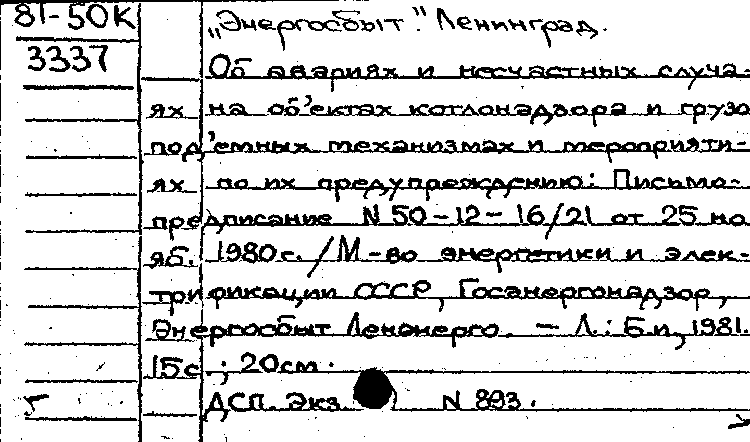 81-50К
3337
„Энергосбыт." Ленинград.
Об авариях и несчастных случа-
ях на об'ектах котлонадзора и грузо
под'емных механизмах и мероприяти-
ях по их предупреждению: Письмо-
предписание N 50-12-16/21 от 25 но
яб. 1980г. / М-во энергетики и элек-
трификации СССР, Госэнергонадзор,
Энергосбыт Ленэнерго. – Л.: Б.и., 1981.
15с.; 20см.
ДСП. Экз. N 893.